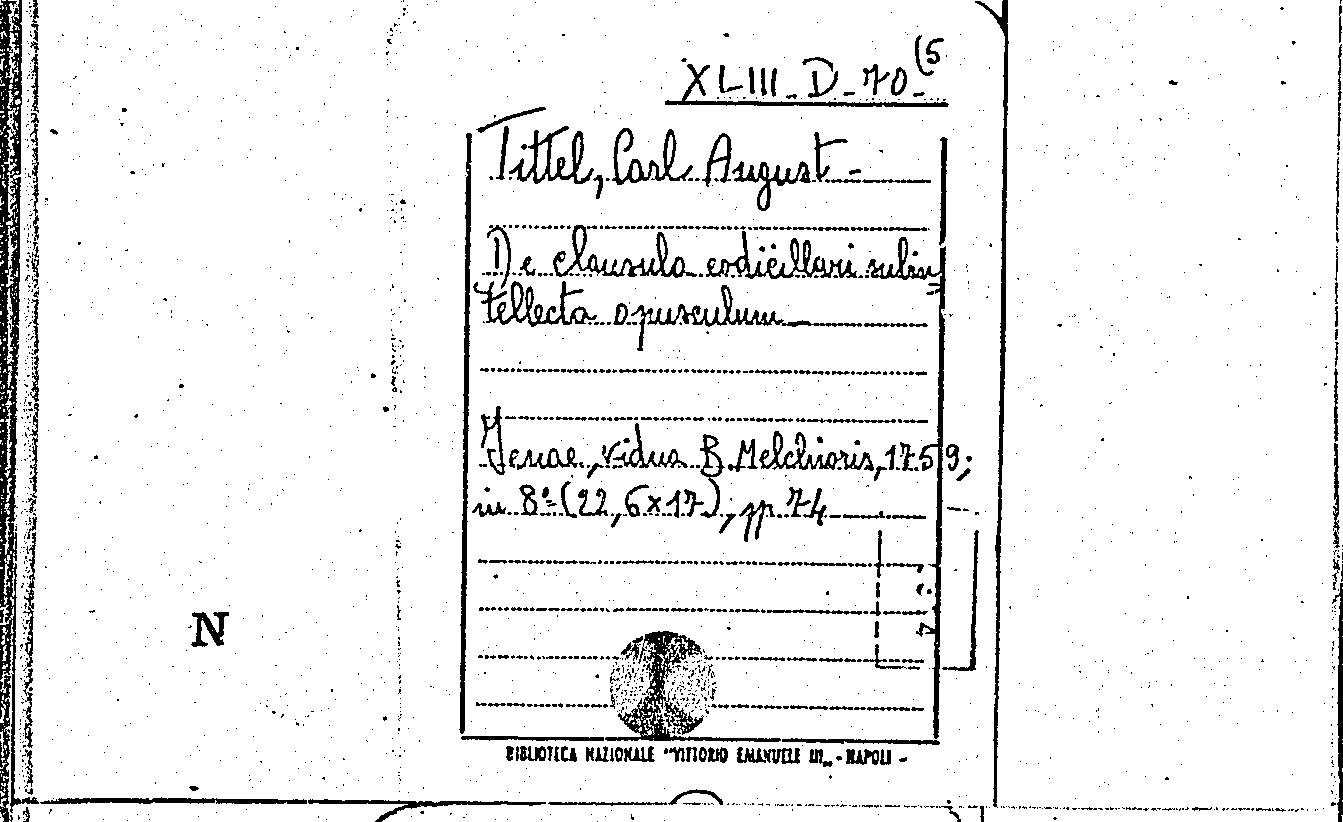 XLIII-D-70-(5
Tittel, Carl August -
De clausula codicillari subin=
tellecta opusculum -
Jenae, vidua B. Melchioris, 1759;
in 8º (22,6x17), pp 74
N
BIBLIOTECA NAZIONALE "VITTORIO EMANUELE III„ - NAPOLI -